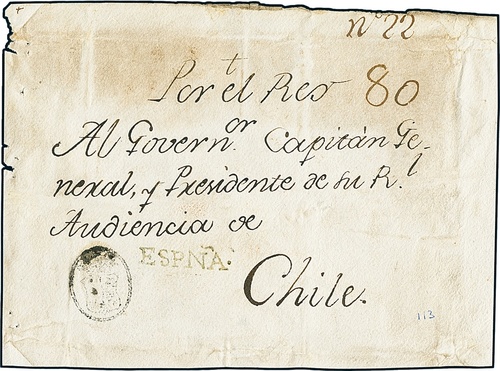 nº 22
Por el Rey 80
Al Govern.or Capitán Ge-
neral, y Presidente de su R.l
Audiencia de
ESPÑA.
Chile.
113